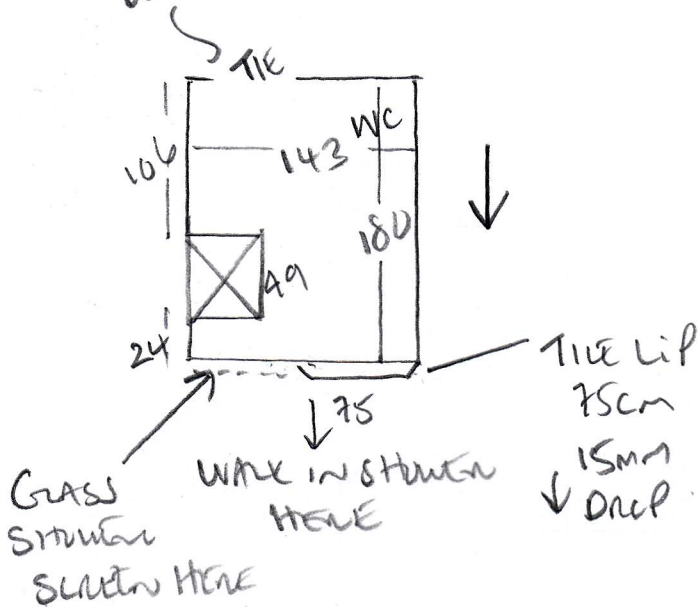 TILE
106
143
WC
180
49
24
75
TILE LIP
75CM
15MM
DROP
WALK IN SHOWER
HERE
GLASS
SHOWER
SCREEN HERE